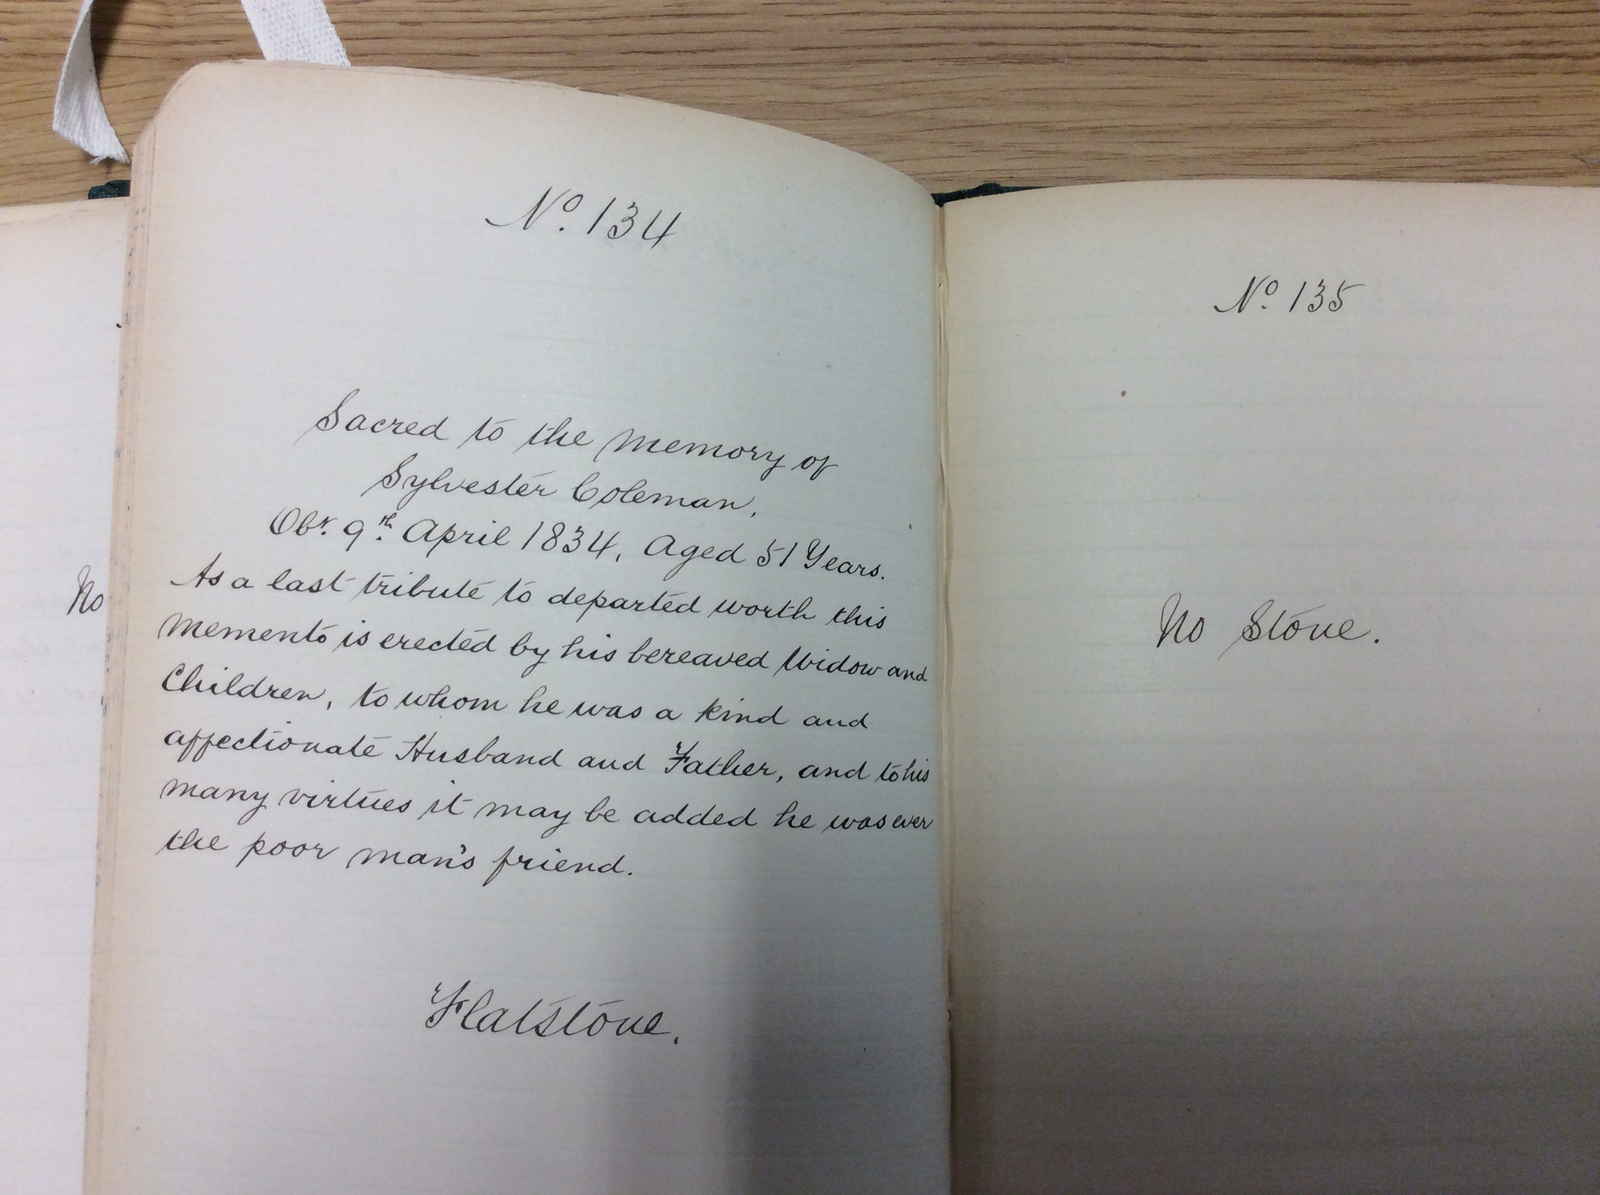 No
No. 134
Sacred to the Memory of
Sylvester Coleman.
Obt. 9th. April 1834, Aged 51 Years.
As a last tribute to departed worth this
Memento is erected by his bereaved Widow and
Children, to whom he was a kind and
affectionate Husband and Father, and to his
many virtues it may be added he was ever
the poor man's friend.
Flatstone.
No. 135
No Stone.